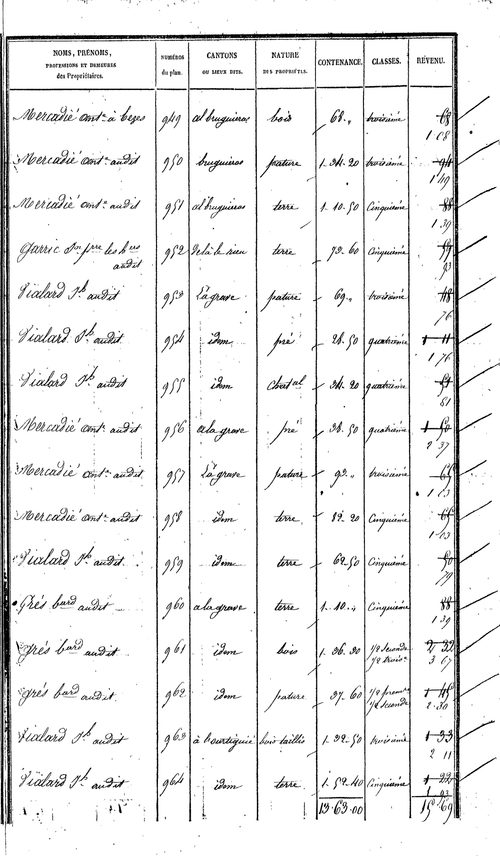 NOMS, PRÉNOMS, PROFESSIONS ET DEMEURES des Propriétaires. NUMÉROS du plan. CANTONS OU LIEUX DITS. NATURE DES PROPRIÉTÉS. CONTENANCE. CLASSES. REVENU.
Mercadié ant.ne à bezes 949 al bruguieras bois 68 „ troisième 68
1 08
Mercadié ant.ne audit 950 bruguieras pature 1. 34. 20 troisième 94
1 49
Mercadié ant.ne audit 951 al bruguieras terre 1. 10. 50 Cinquième 88
1 39
Garric pre les hers 952 delà le rieu terre 73. 60 Cinquième
audit 93
Vialard Jh audit 953 La grave pature 69 „ troisième 48
76
Vialard Jh audit 954 idem pré 28. 50 quatrième 1 11
1 76
Vialard Jh audit 955 idem 34. 20 quatrième
Mercadié ant.ne audit 956 a la grave pré 38. 50 quatrième 1 50
2 37
Mercadié ant.ne audit 957 La grave pature 92 „ troisième 65
1 03
Mercadié ant.ne audit 958 idem terre 82. 20 Cinquième 65
1 03
Vialard Jh audit 959 idem terre 62. 50 Cinquième 50
79
Grés bard audit 960 a la grave terre 1. 10 „ Cinquième 88
1 39
Grés bard audit 961 idem bois 1. 36. 30 1/2 seconde 2 32
1/2 trois.e 3 67
Grés bard audit 962 idem pature 37. 60 1/2 prem.e 1 45
1/2 seconde 2 30
Vialard Jh audit 963 bois taillis 1. 32. 50 troisième 1 33
2 11
Vialard Jh audit 964 idem terre 1. 52. 40 Cinquième 1 22
1 93
13. 63. 00 15 69